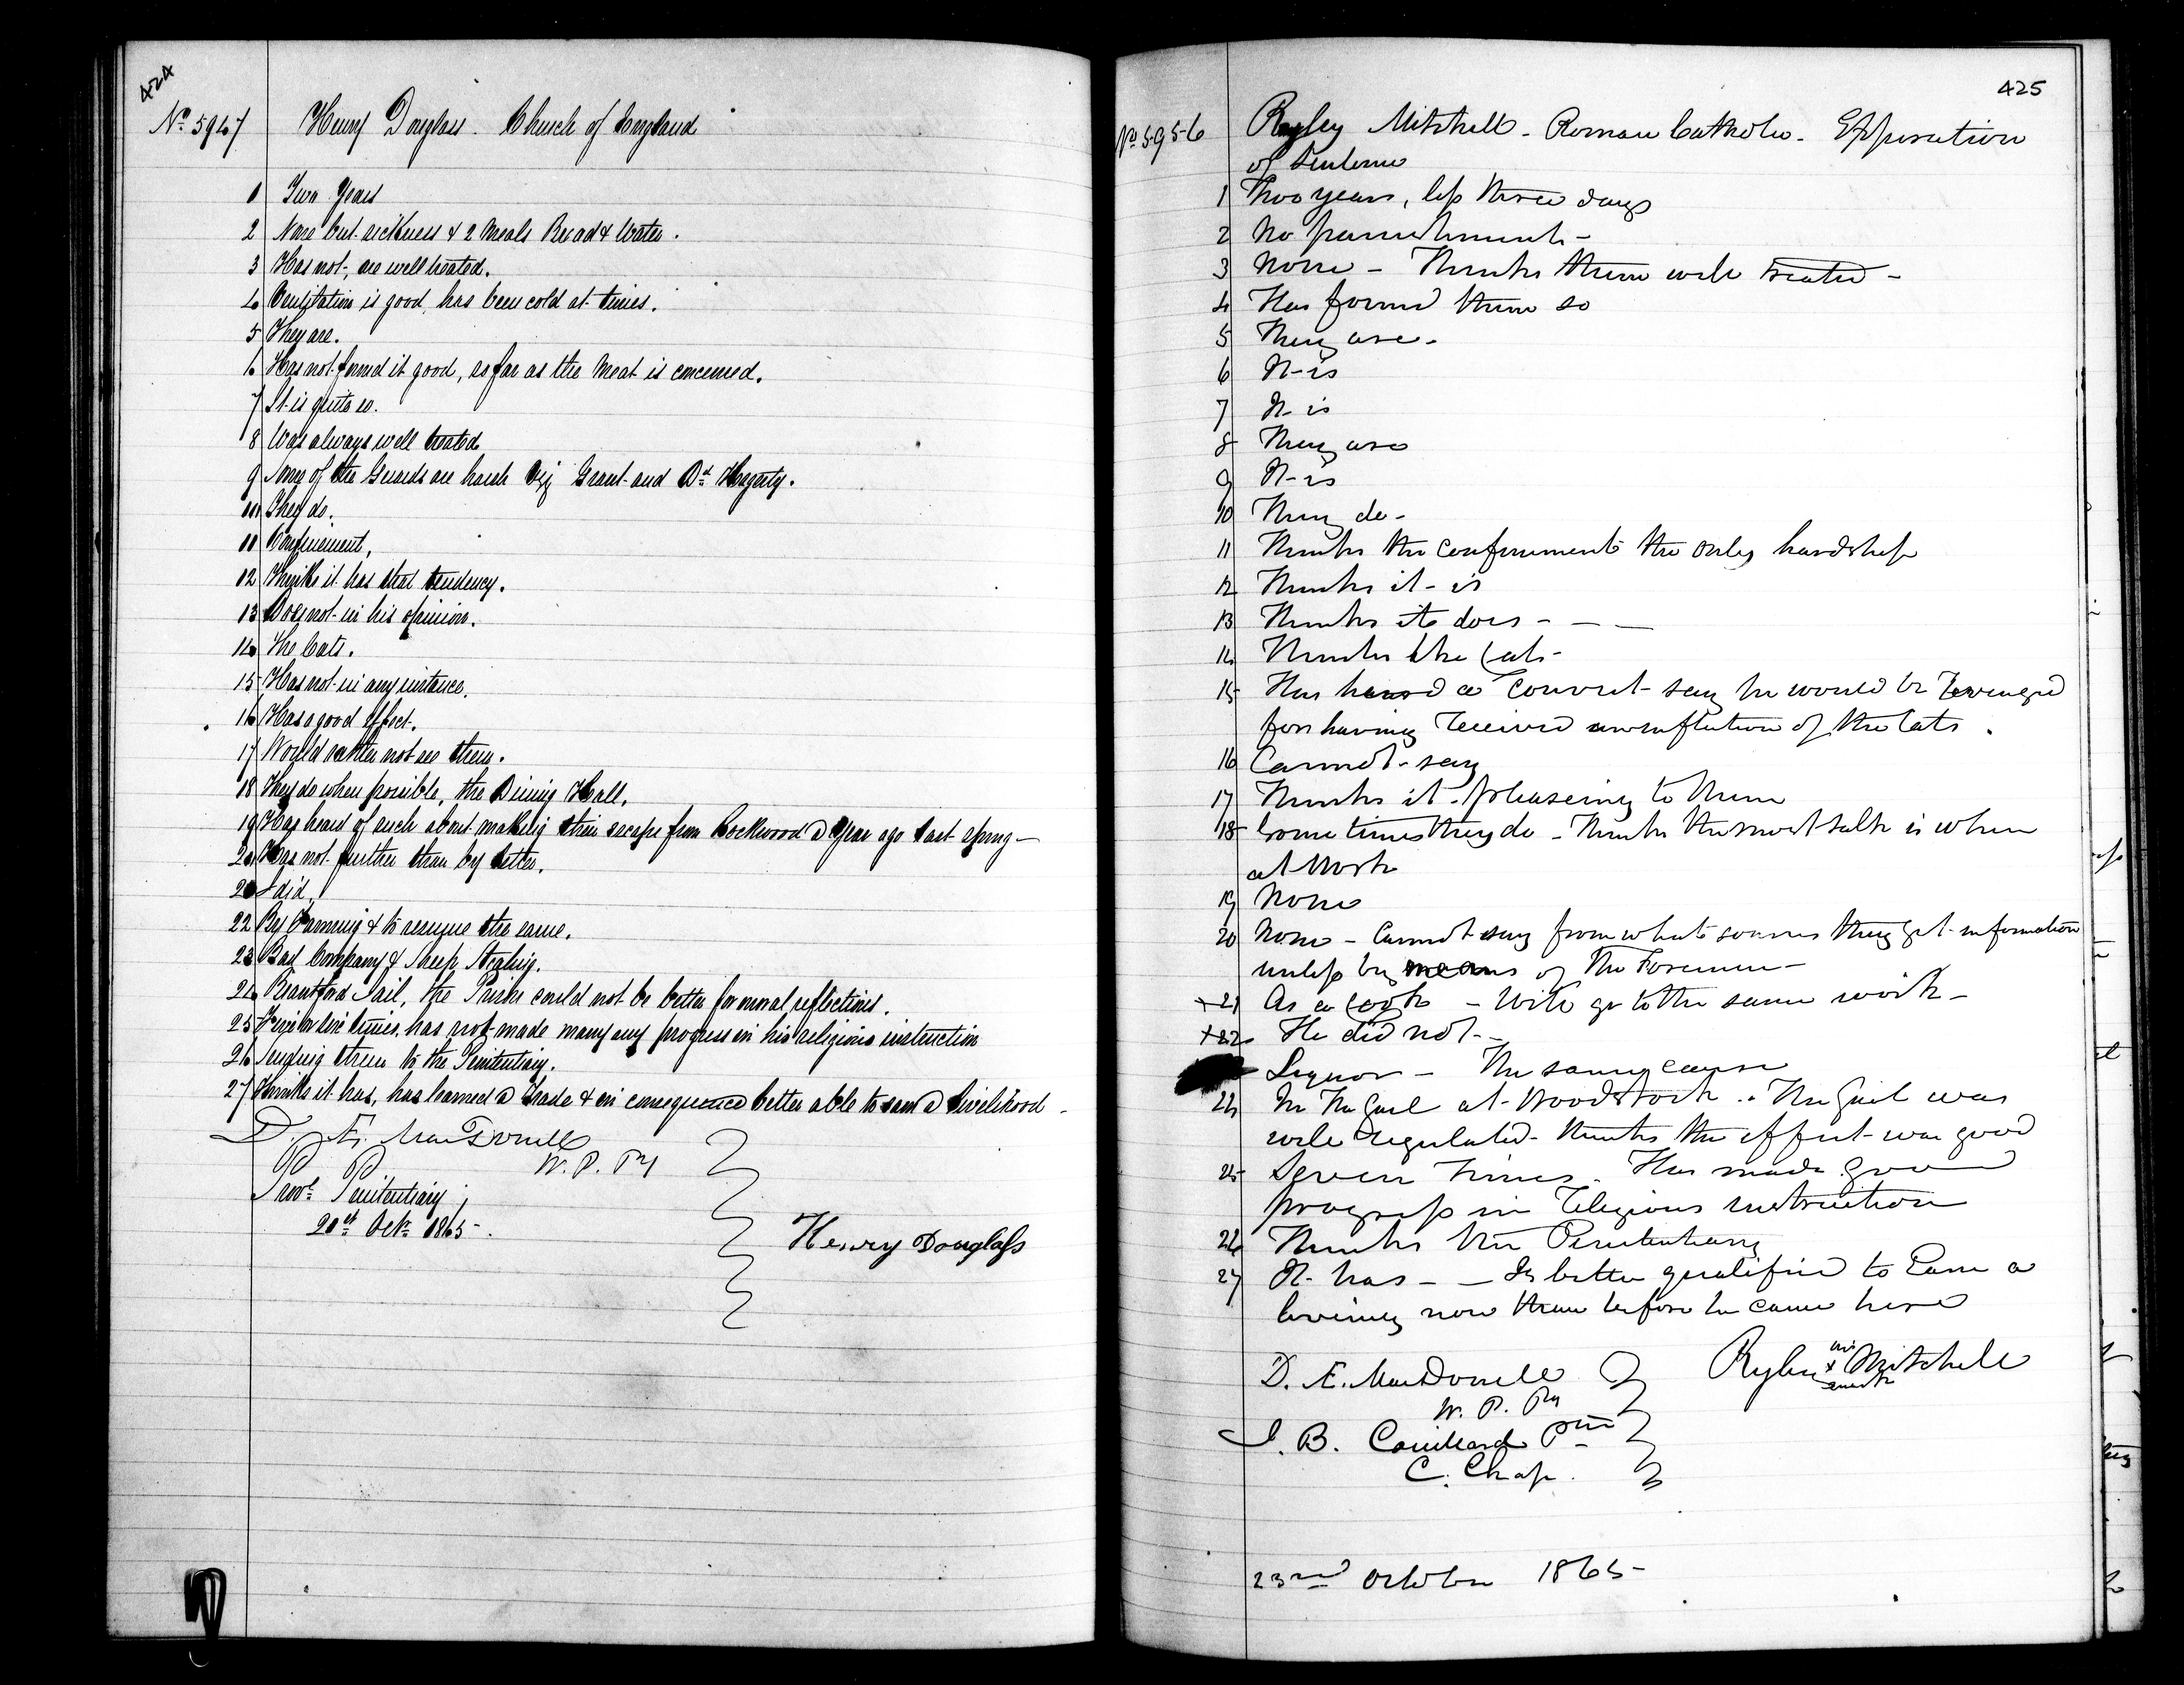 424
No 5947 Henry Douglass. Church of England
1 Two Years
2 None but sickness & 2 Meals Bread & Water.
3 Has not, are well treated.
4 Ventilation is good, has been cold at times.
5 They are.
6 Has not found it good, so far as the Meat is concerned.
7 It is quite so.
8 Was always well treated
9 Some of the Guards are harsh Viz Grant and Dd Hagerty.
10 They do.
11 Confinement,
12 Thinks it has that tendency.
13 Does not in his opinion.
14 The Cats.
15 Has not in any instance.
16 Has a good effect.
17 Would rather not see them.
18 They do when possible, the Dining Hall.
19 Has heard of such about making their escape from Rockwood a Year ago last spring—
20 Has not further than by letter.
21 I did.
22 By Farming & to resume the same.
23 Bad Company & Sheep Stealing.
24 Brantford Jail, the Prison could not be better for moral reflections.
25 times, has not made many any progress in his religious instruction
26 Sending them to the Penitentiary.
27 Thinks it has, has learned a Trade & in consequence better able to earn a livelihood -
D. Æ. MacDonell
W. P. Py
Provl Penitentiary;
20th Octr 1865-.
Henry Douglass
425
No 5956 Ryley Mitchell - Roman Catholic - Expiration
of Sentence
1 Two years, less three days
2 No punishment -
3 None - Thinks them well treated -
4 Has found them so
5 They are -
6 It is
7 It is
8 They are
9 It is
10 They do -
11 Thinks the confinement the only hardship
12 Thinks it is
13 Thinks it does - - -
14 Thinks the Cats -
15 Has heard a Convict say he would be revenged
for having received an infliction of the Cats.
16 Cannot say
17 Thinks it pleaseing to them
18 Some times they do - Thinks the most talk is when
at Work
19 None
20 None - Cannot say from what sources they get information
unless by means of the Foremen -
+21 As a Cook - Will go to the same work -
+22 He did not -
Liquor - The same cause
24 In the Gaol at Woodstock. The Gaol was
well regulated - thinks the effect was good
25 Seven times. Has made good
progress in religious instruction
26 Thinks the Penitentiary
27 It has - - Is better qualified to Earn a
liveing now than before he came here
D. Æ. MacDonell
W. P. Py
Ryley his x mark Mitchell
J. B. Couillard Ptre
C. Chap.
23rd October 1865 -